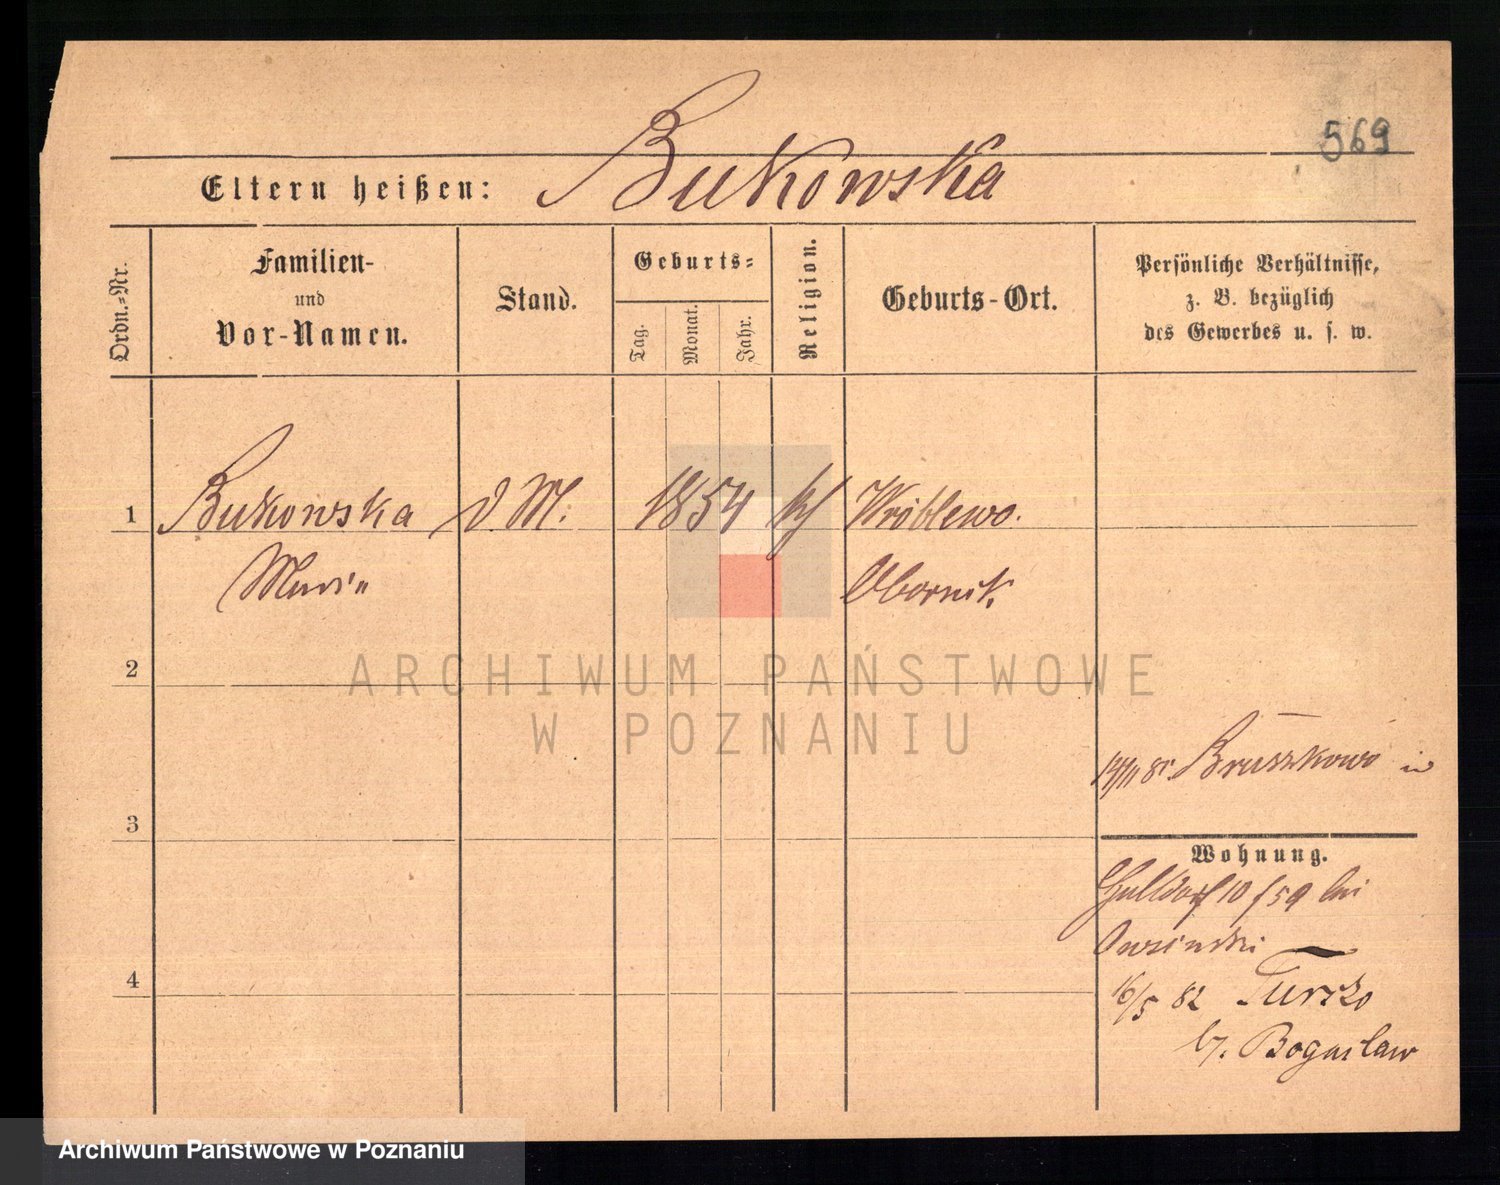 569
Eltern heißen: Bukowska
Ordn.-Nr.
Familien-
und
Vor-Namen.
Stand.
Geburts-
Tag.
Monat.
Jahr.
Religion.
Geburts-Ort.
Persönliche Verhältnisse,
z. B. bezüglich
des Gewerbes u. s. w.
1 Bukowska d. M. 1854 k Wróblewo.
Marie Obornik.
2
ARCHIWUM PAŃSTWOWE
W POZNANIU
14/11 81. Bruszkowo in
3
Wohnung.
Halldorf 10 / 59 bei
Owsinski
4
16/5 82 Tursko
b. Boguslaw
Archiwum Państwowe w Poznaniu